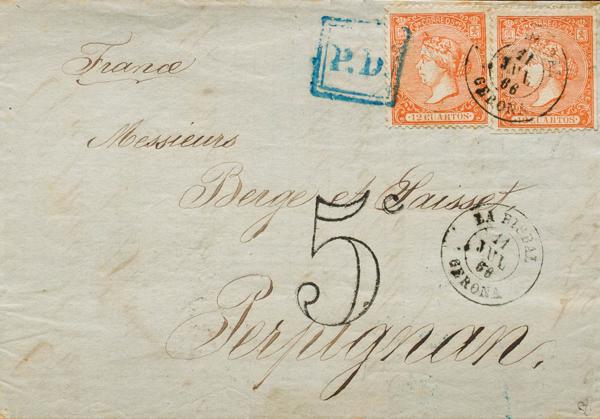 France
P.D
CORREOS
12 CUARTOS
CUARTOS
11
JUL
66
GERONA
Messieurs
Berge et Saisset
5
LA BISBAL
11
JUL
66
GERONA
Perpignan,